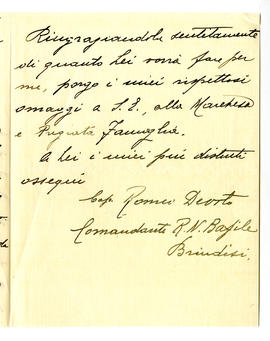 Ringraziandola sentitamente
di quanto Lei vorrà fare per
me, porgo i miei rispettosi
omaggi a S. E., alla Marchesa
e Pregiata Famiglia.
A Lei i miei più distinti
ossequi
Cap. Romeo
Comandante R. N. Basile
Brindisi.